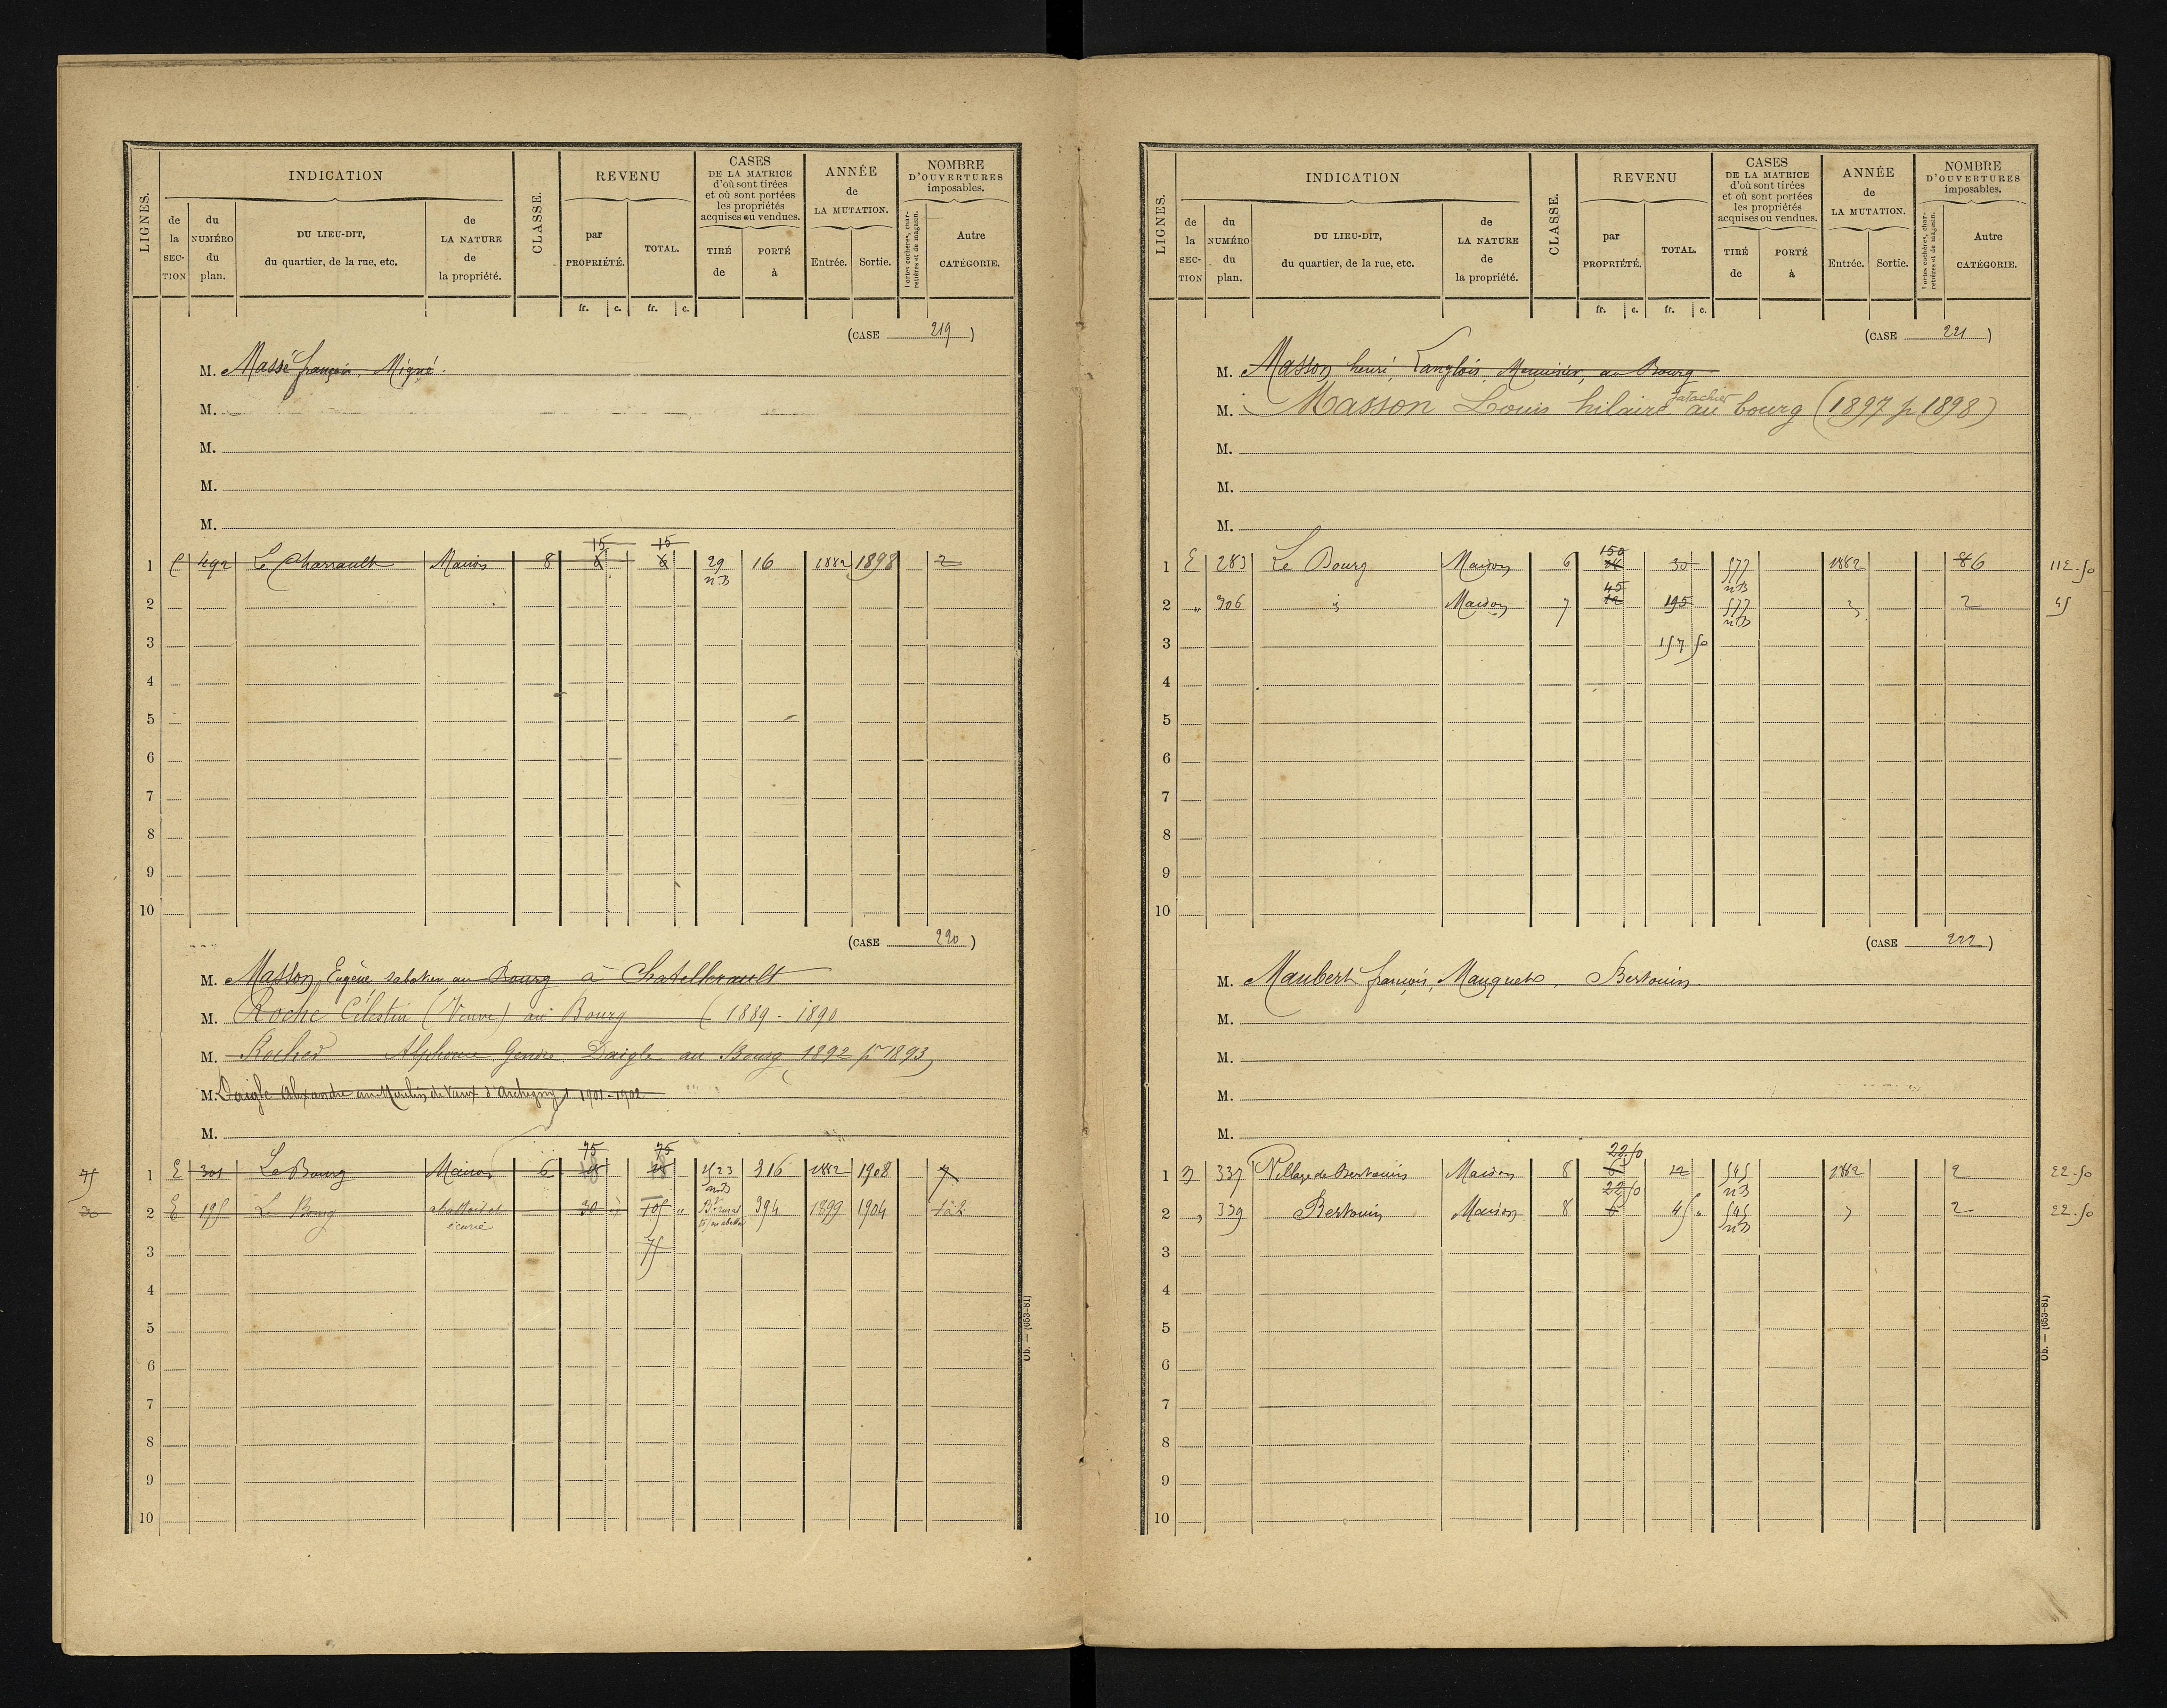 LIGNES.
INDICATION
de la SECTION
du NUMÉRO du plan.
DU LIEU-DIT, du quartier, de la rue, etc.
de LA NATURE de la propriété.
CLASSE.
REVENU
par PROPRIÉTÉ.
TOTAL.
CASES DE LA MATRICE d'où sont tirées et où sont portées les propriétés acquises ou vendues.
TIRÉ de
PORTÉ à
ANNÉE de LA MUTATION.
Entrée.
Sortie.
NOMBRE D'OUVERTURES imposables.
Portes cochères, charretières et de magasin.
Autre CATÉGORIE.
fr. c. fr. c.
(CASE 219)
M. Massé françois, Migné.
M.
M.
M.
M.
15 15
1 C 492 Le Charrault Maison 8 6 6 29 16 1882 1898 2
nB
2
3
4
5
6
7
8
9
10
(CASE 220)
M. Masson, Eugène sabotier au Bourg à Chatellerault
M. Roche Célestin (Veuve) au Bourg (1889 - 1890
M. Rocher Alphonse Gendre Daigle au Bourg 1892 pr 1893)
M. Daigle Alexandre au Moulin de Vaux d'Archigny 1901-1902
M.
75 75
75 1 E 301 Le Bourg Maison 6 18 18 523 316 1882 1908 7
nB
2 E 195 Le Bourg écurie 30 105 394 1899 1904
3 75
4
5
6
7
8
9
10
Ob. — (653-81)
LIGNES.
INDICATION
de la SECTION
du NUMÉRO du plan.
DU LIEU-DIT, du quartier, de la rue, etc.
de LA NATURE de la propriété.
CLASSE.
REVENU
par PROPRIÉTÉ.
TOTAL.
CASES DE LA MATRICE d'où sont tirées et où sont portées les propriétés acquises ou vendues.
TIRÉ de
PORTÉ à
ANNÉE de LA MUTATION.
Entrée.
Sortie.
NOMBRE D'OUVERTURES imposables.
Portes cochères, charretières et de magasin.
Autre CATÉGORIE.
fr. c. fr. c.
(CASE 221)
M. Masson henri, Langlois, Menuisier, au Bourg
M. Masson Louis hilaire au bourg (1897 p 1898)
M.
M.
M.
150
1 E 283 Le Bourg Maison 6 30 577 1882 86 112.50
45 nB
2 " 306 Maison 7 12 195 577 2 45
nB
3 157 50
4
5
6
7
8
9
10
(CASE 222)
M. Maubert françois, Mauquets, Bertouin.
M.
M.
M.
M.
22.50
1 337 Village de Bertouin Maison 8 6 12 545 1882 2 22.50
22 50 nB
2 339 Bertouin Maison 8 6 45 545 2 22.50
nB
3
4
5
6
7
8
9
10
Ob. — (653-81)